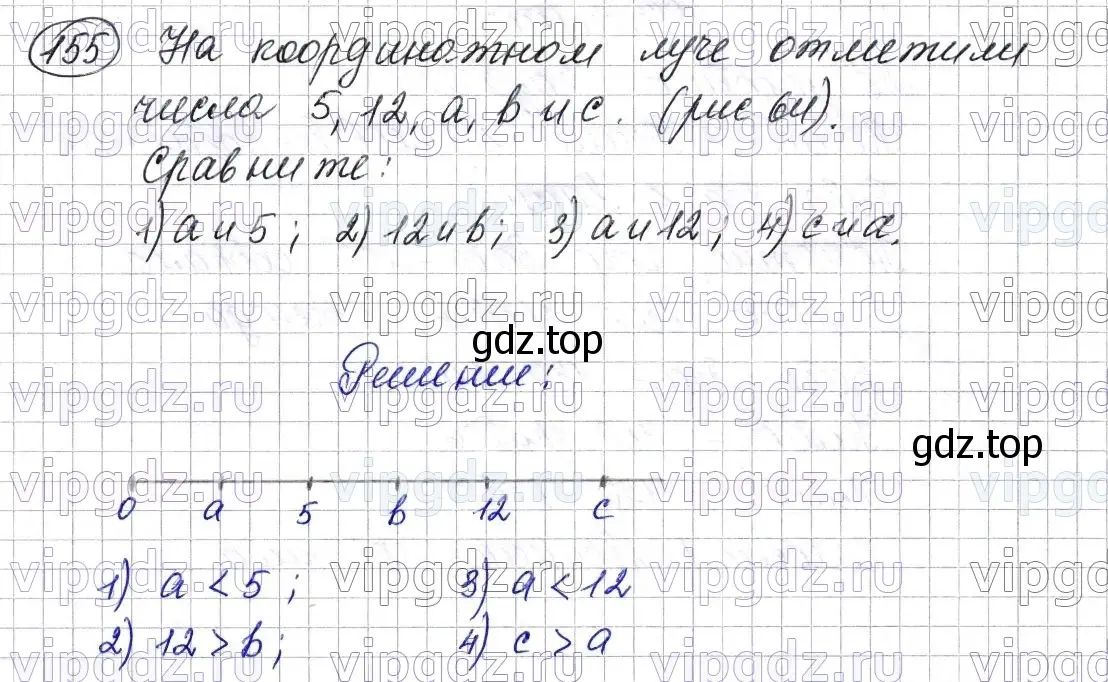 155 На координатном луче отметили
числа 5, 12, a, b и c. (рис 64).
Сравните:
1) a и 5; 2) 12 и b; 3) a и 12; 4) c и a.
gdz.top
Решение:
gdz.top
0 a 5 b 12 c
1) a < 5; 3) a < 12
2) 12 > b; 4) c > a
vipgdz.ru